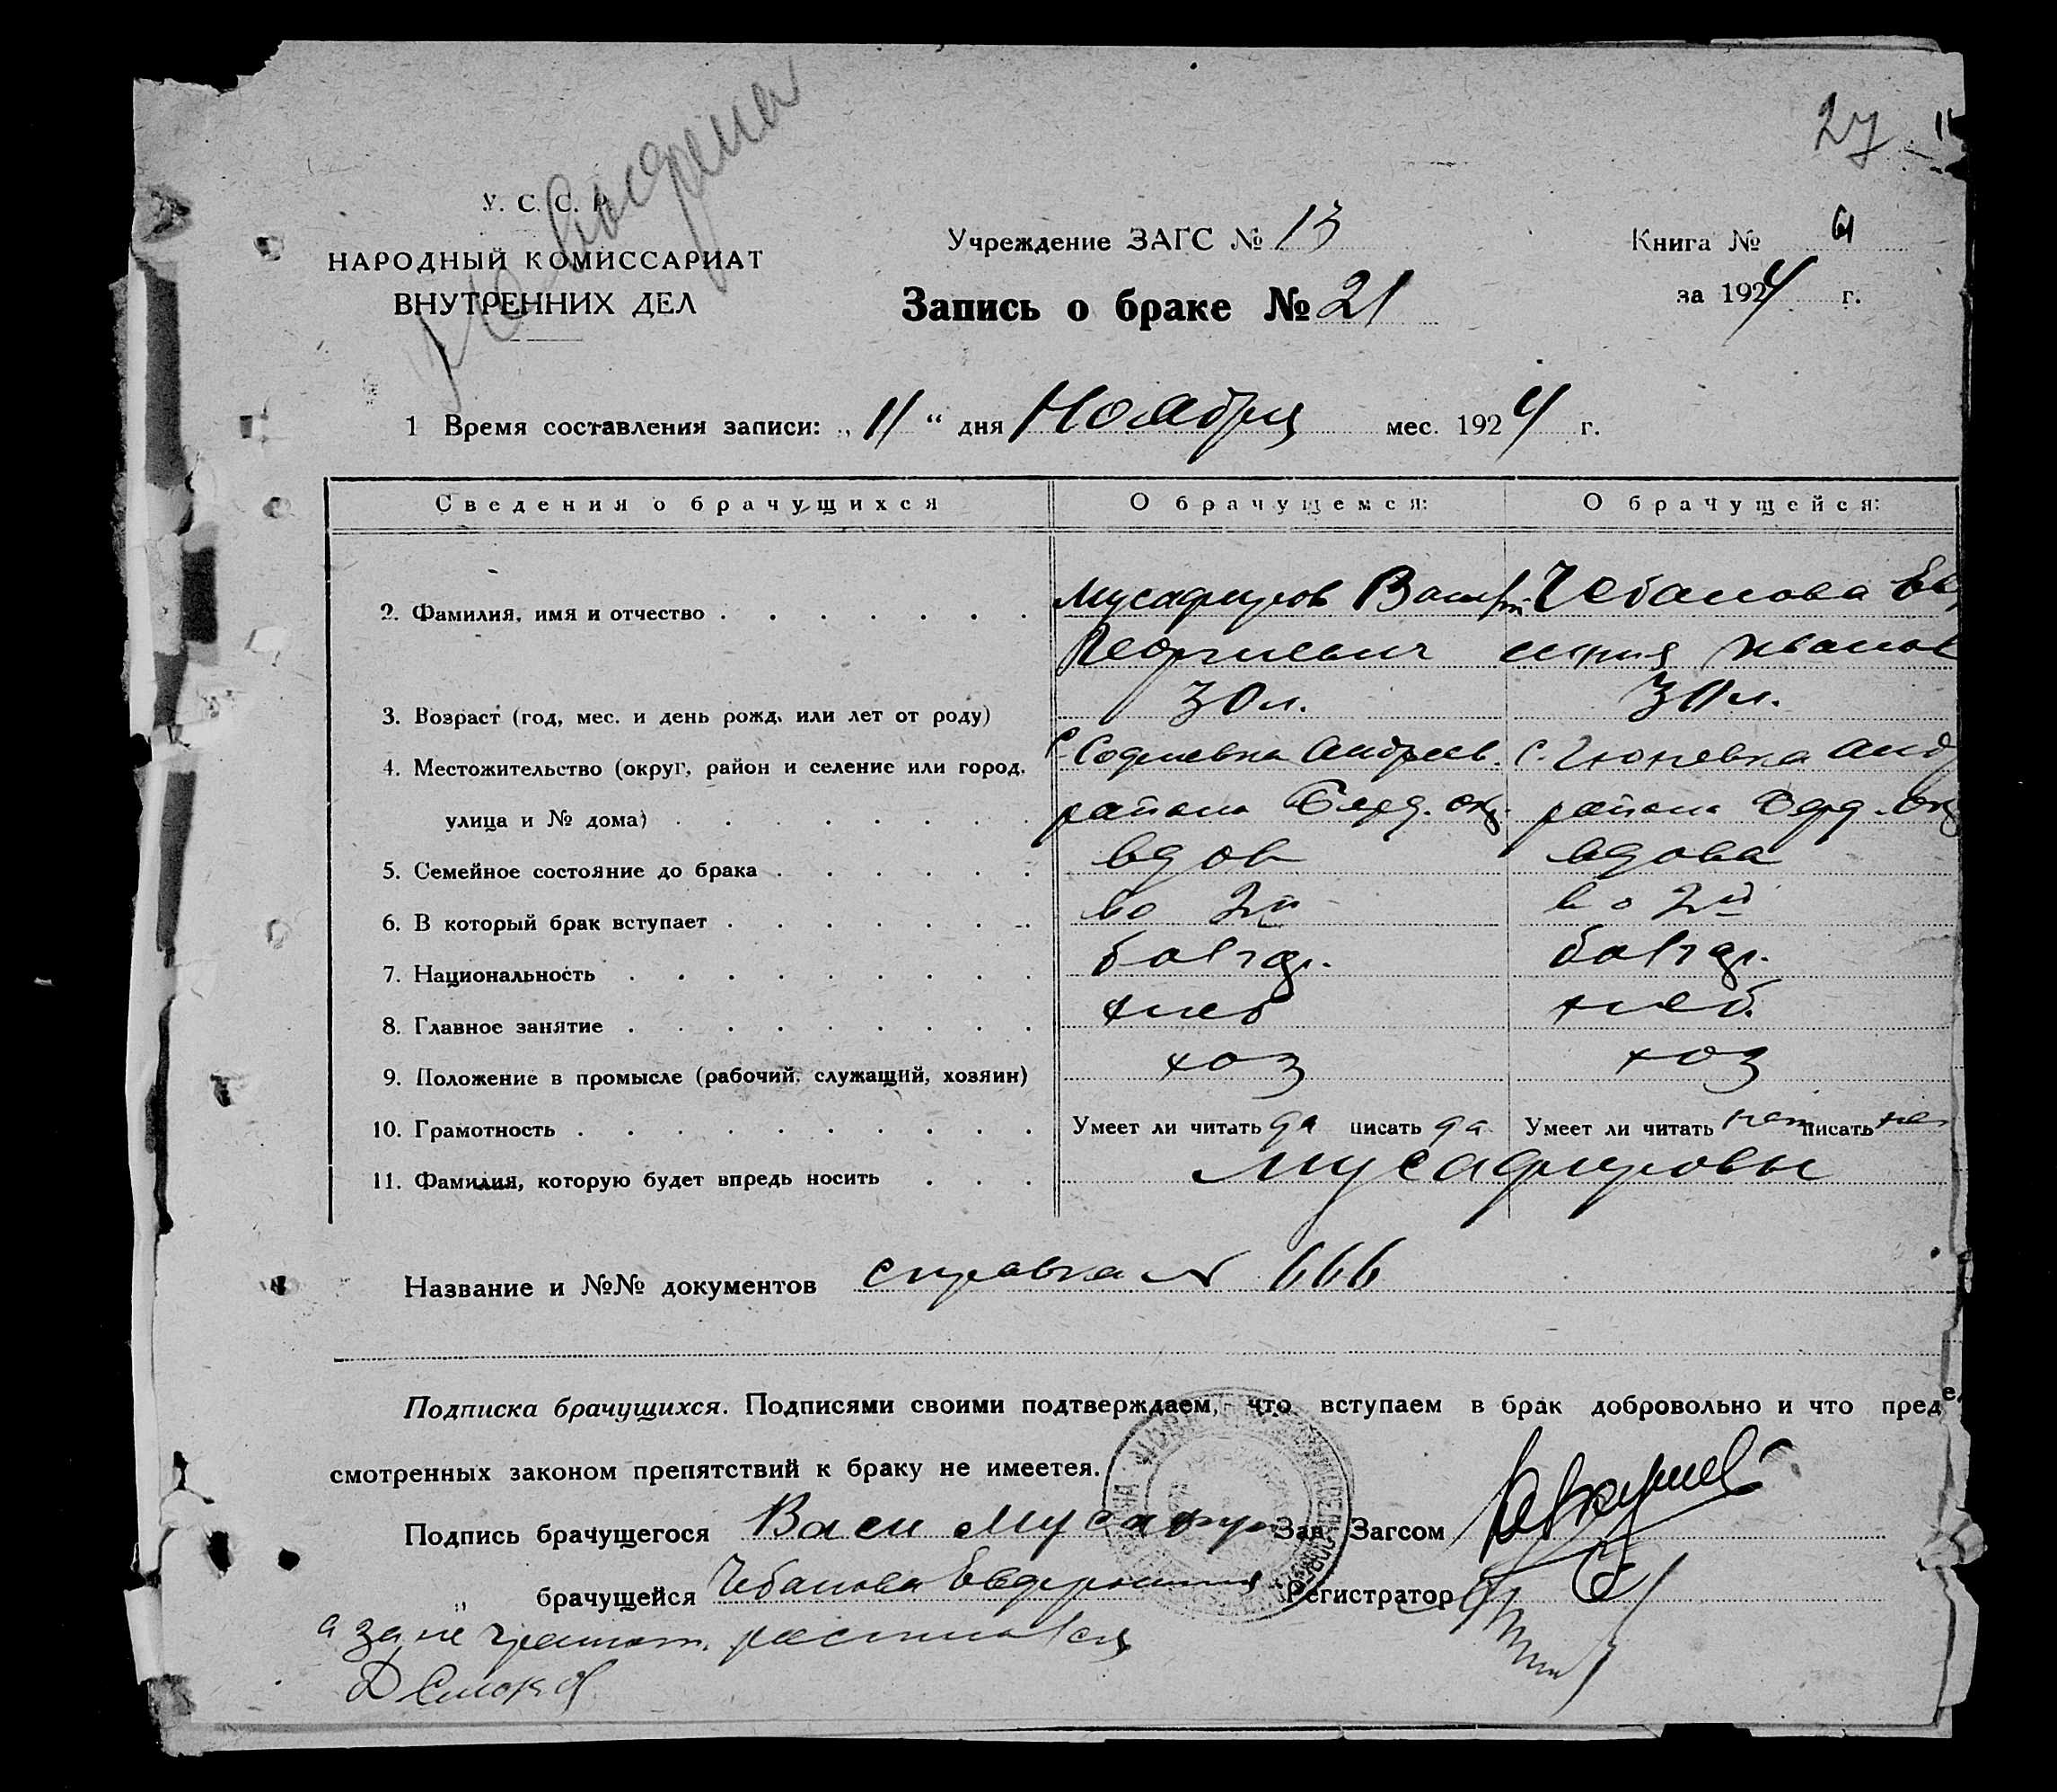 27
У. С. С. Р.
НАРОДНЫЙ КОМИССАРИАТ
ВНУТРЕННИХ ДЕЛ
Учреждение ЗАГС № 13
Книга №
Запись о браке № 21
за 1924 г.
1 Время составления записи: „11“ дня Ноября мес. 1924 г.
Сведения о брачущихся О брачущемся: О брачущейся:
2. Фамилия, имя и отчество Мусафиров Васил Чебанова Ев
Георгиевич Иванов
3. Возраст (год, мес. и день рожд. или лет от роду) 30 л. 30 л.
4. Местожительство (округ, район и селение или город, с. Софиевка Андреев. с. Гюневка Анд
улица и № дома) района Берд. окр. района Берд. ок
5. Семейное состояние до брака вдов вдова
6. В который брак вступает во 2й во 2й
7. Национальность болгар. болгар.
8. Главное занятие хлеб хлеб.
9. Положение в промысле (рабочий, служащий, хозяин) хоз хоз
10. Грамотность Умеет ли читать да писать да Умеет ли читать нет писать нет
11. Фамилия, которую будет впредь носить Мусафировы
Название и №№ документов справка № 666
Подписка брачущихся. Подписями своими подтверждаем, что вступаем в брак добровольно и что преде
смотренных законом препятствий к браку не имеетея.
Подпись брачущегося Васи Мусафир Зав. Загсом
„ брачущейся Чебанова Регистратор
а за не грамот. росписался